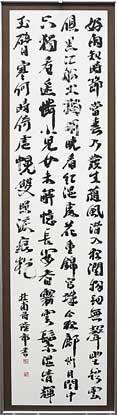 好雨知時節當春乃發生隨風潛入夜潤物細無聲野徑雲
俱黑江船火獨明曉看紅濕處花重錦官城今夜鄜州月閨中
只獨看遙憐小兒女未解憶長安香霧雲鬟濕清輝
玉臂寒何時倚虛幌雙照淚痕乾
杜甫詩 書